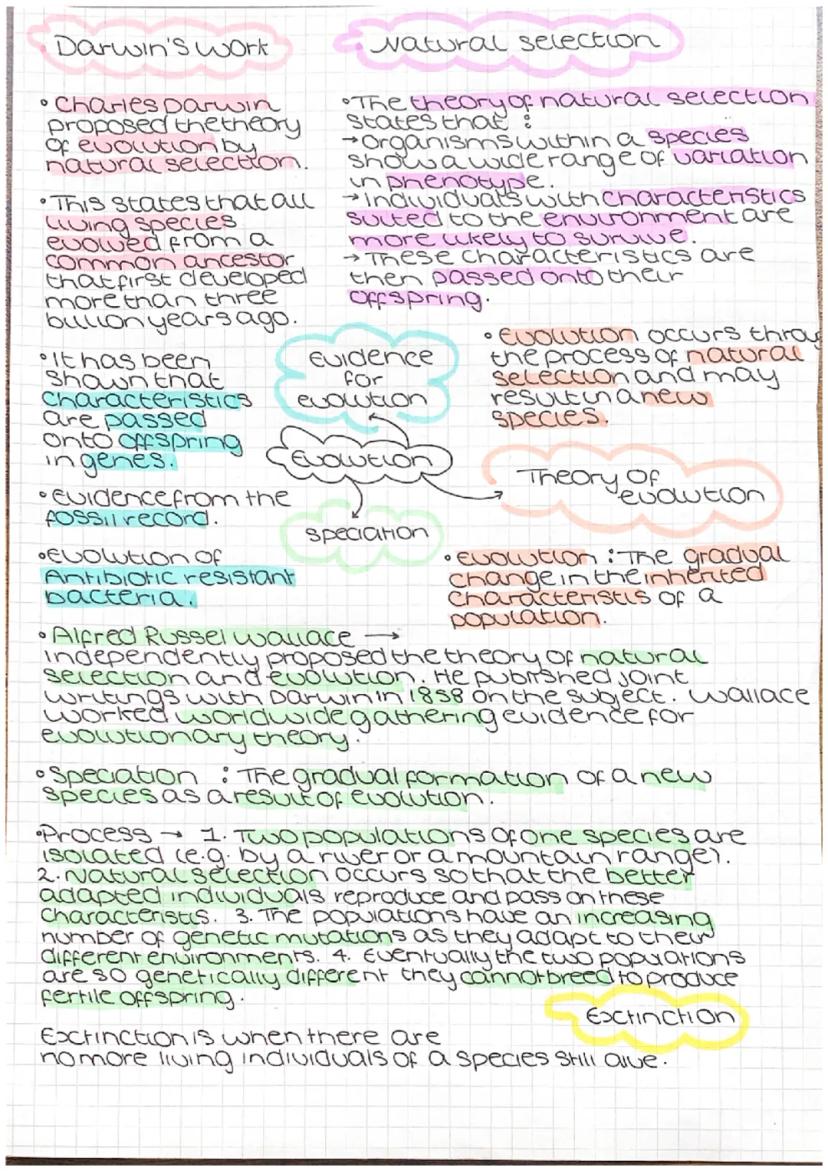 Darwin's work
• Charles Darwin
proposed the theory
of evolution by
natural selection.
• This states that all
living species
evolved from a
common ancestor
that first developed
more than three
billion years ago.
Natural selection
• The theory of natural selection
states that :
→ Organisms within a species
show a wide range of variation
in phenotype.
→ Individuals with characteristics
suited to the environment are
more likely to survive.
→ These characteristics are
then passed onto their
offspring.
• It has been
shown that
characteristics
are passed
onto offspring
in genes.
• Evidence from the
fossil record.
• Evolution of
Antibiotic resistant
bacteria.
Evidence
for
evolution
Evolution
Speciation
• Evolution occurs throug
the process of natural
selection and may
result in a new
species.
Theory of
evolution
• Evolution : The gradual
change in the inherited
characteristis of a
population.
• Alfred Russel Wallace →
independently proposed the theory of natural
selection and evolution. He published joint
writings with Darwin in 1858 on the subject. Wallace
worked worldwide gathering evidence for
evolutionary theory.
• Speciation : The gradual formation of a new
species as a result of evolution.
• Process → 1. Two populations of one species are
isolated (e.g. by a river or a mountain range).
2. Natural selection occurs so that the better
adapted individuals reproduce and pass on these
characteristis. 3. The populations have an increasing
number of genetic mutations as they adapt to their
different environments. 4. Eventually the two populations
are so genetically different they cannot breed to produce
fertile offspring.
Extinction
Extinction is when there are
no more living individuals of a species still alive.